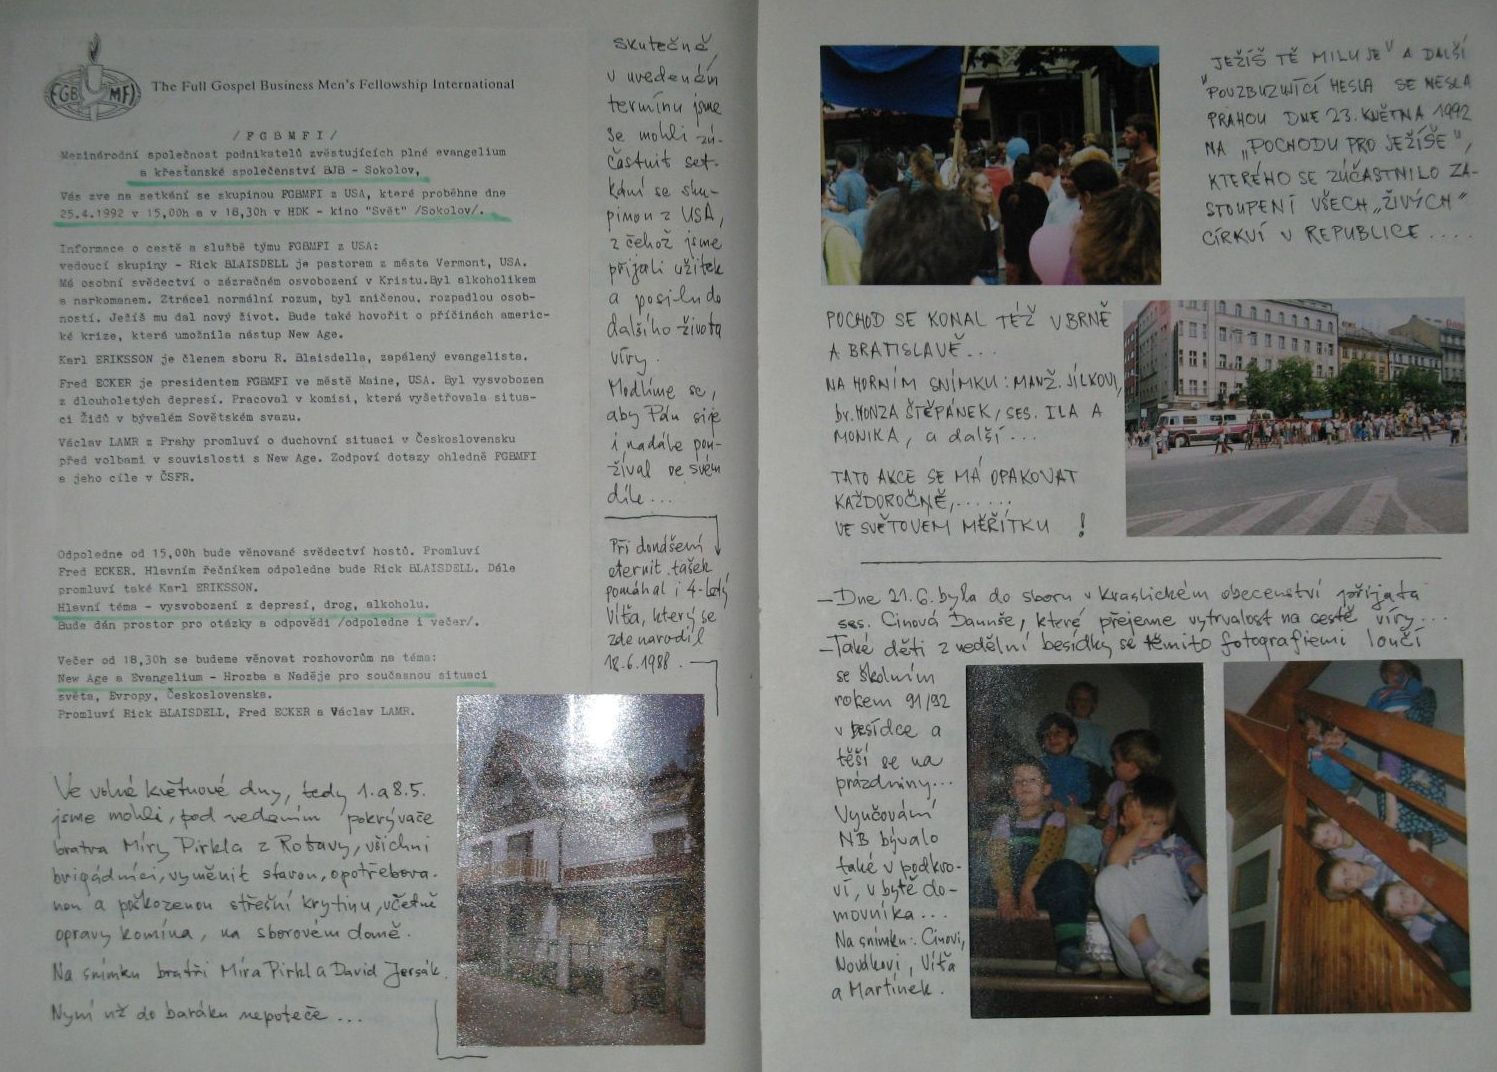 FGB MFI
The Full Gospel Business Men's Fellowship International
/ F G B M F I /
Mezinárodní společnost podnikatelů zvěstujících plné evangelium
a křesťanské společenství BJB - Sokolov,
Vás zve na setkání se skupinou FGBMFI z USA, které proběhne dne
25.4.1992 v 15,00h a v 18,30h v HDK - kino "Svět" /Sokolov/.
Informace o cestě a službě týmu FGBMFI z USA:
vedoucí skupiny - Rick BLAISDELL je pastorem z města Vermont, USA.
Má osobní svědectví o zázračném osvobození v Kristu.Byl alkoholikem
a narkomanem. Ztrácel normální rozum, byl zničenou, rozpadlou osob-
ností. Ježíš mu dal nový život. Bude také hovořit o příčinách americ-
ké krize, která umožnila nástup New Age.
Karl ERIKSSON je členem sboru R. Blaisdella, zapálený evangelista.
Fred ECKER je presidentem FGBMFI ve městě Maine, USA. Byl vysvobozen
z dlouholetých depresí. Pracoval v komisi, která vyšetřovala situa-
ci Židů v bývalém Sovětském svazu.
Václav LAMR z Prahy promluví o duchovní situaci v Československu
před volbami v souvislosti s New Age. Zodpoví dotazy ohledně FGBMFI
a jeho cíle v ČSFR.
Odpoledne od 15,00h bude věnované svědectví hostů. Promluví
Fred ECKER. Hlavním řečníkem odpoledne bude Rick BLAISDELL. Dále
promluví také Karl ERIKSSON.
Hlavní téma - vysvobození z depresí, drog, alkoholu.
Bude dán prostor pro otázky a odpovědi /odpoledne i večer/.
Večer od 18,30h se budeme věnovat rozhovorům na téma:
New Age a Evangelium - Hrozba a Naděje pro současnou situaci
světa, Evropy, Československa.
Promluví Rick BLAISDELL, Fred ECKER a Václav LAMR.
Ve volné květnové dny, tedy 1. a 8.5.
jsme mohli, pod vedením pokrývače
bratra Míry Pirkla z Rotavy, všichni
brigádníci, vyměnit starou, opotřebova-
nou a poškozenou střešní krytinu, včetně
opravy komína, na sborovém domě.
Na snímku bratři Míra Pirkl a David Jersák.
Nyní už do baráku nepoteče ...
Skutečně,
v uvedeném
termínu jsme
se mohli zú-
častnit set-
kání se sku-
pinou z USA,
z čehož jsme
přijali užitek
a posilu do
dalšího života
víry.
Modlíme se,
aby Pán si je
i nadále pou-
žíval ve svém
díle ...
Při donášení
eternit. tašek
pomáhal i 4-letý
Víťa, který se
zde narodil
18.6.1988.
"JEŽÍŠ TĚ MILUJE" A DALŠÍ
POVZBUZUJÍCÍ HESLA SE NESLA
PRAHOU DNE 23. KVĚTNA 1992
NA „POCHODU PRO JEŽÍŠE",
KTERÉHO SE ZÚČASTNILO ZA-
STOUPENÍ VŠECH „ŽIVÝCH"
CÍRKVÍ V REPUBLICE ....
POCHOD SE KONAL TÉŽ V BRNĚ
A BRATISLAVĚ...
NA HORNÍM SNÍMKU: MANŽ. JÍLKOVI,
br. HONZA ŠTĚPÁNEK, SES. ILA A
MONIKA, a další ...
TATO AKCE SE MÁ OPAKOVAT
KAŽDOROČNĚ, ......
VE SVĚTOVÉM MĚŘÍTKU !
– Dne 21.6. byla do sboru v Kraslickém obecenství přijata
ses. Cinová Danuše, které přejeme vytrvalost na cestě víry...
– Také děti z nedělní besídky se těmito fotografiemi loučí
se školním
rokem 91/92
v besídce a
těší se na
prázdniny...
Vyučování
NB bývalo
také v podkro-
ví, v bytě do-
movníka ...
Na snímku: Cinovi,
Novákovi, Víťa
a Martínek.